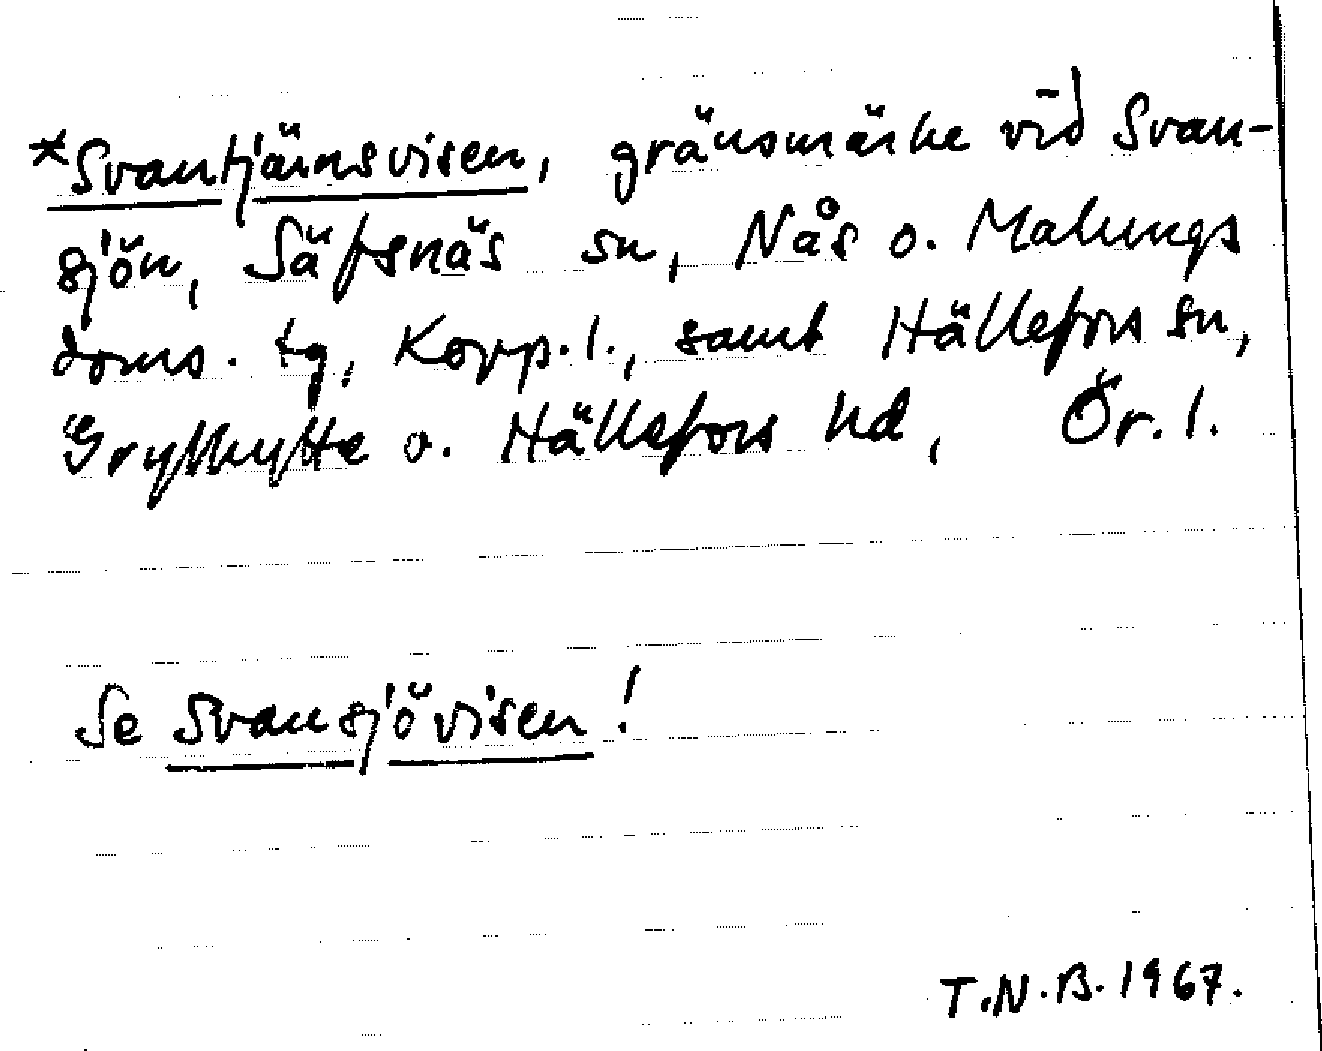 *Svantjärnsvisen, gränsmärke vid Svan-
sjön, Säfsnäs sn, Nås o. Malungs
doms. tg, Kopp. l., samt Hällefors sn,
Grythytte o. Hällefors hd, Ör. l.
Se Svansjövisen!
T.N.B. 1967.